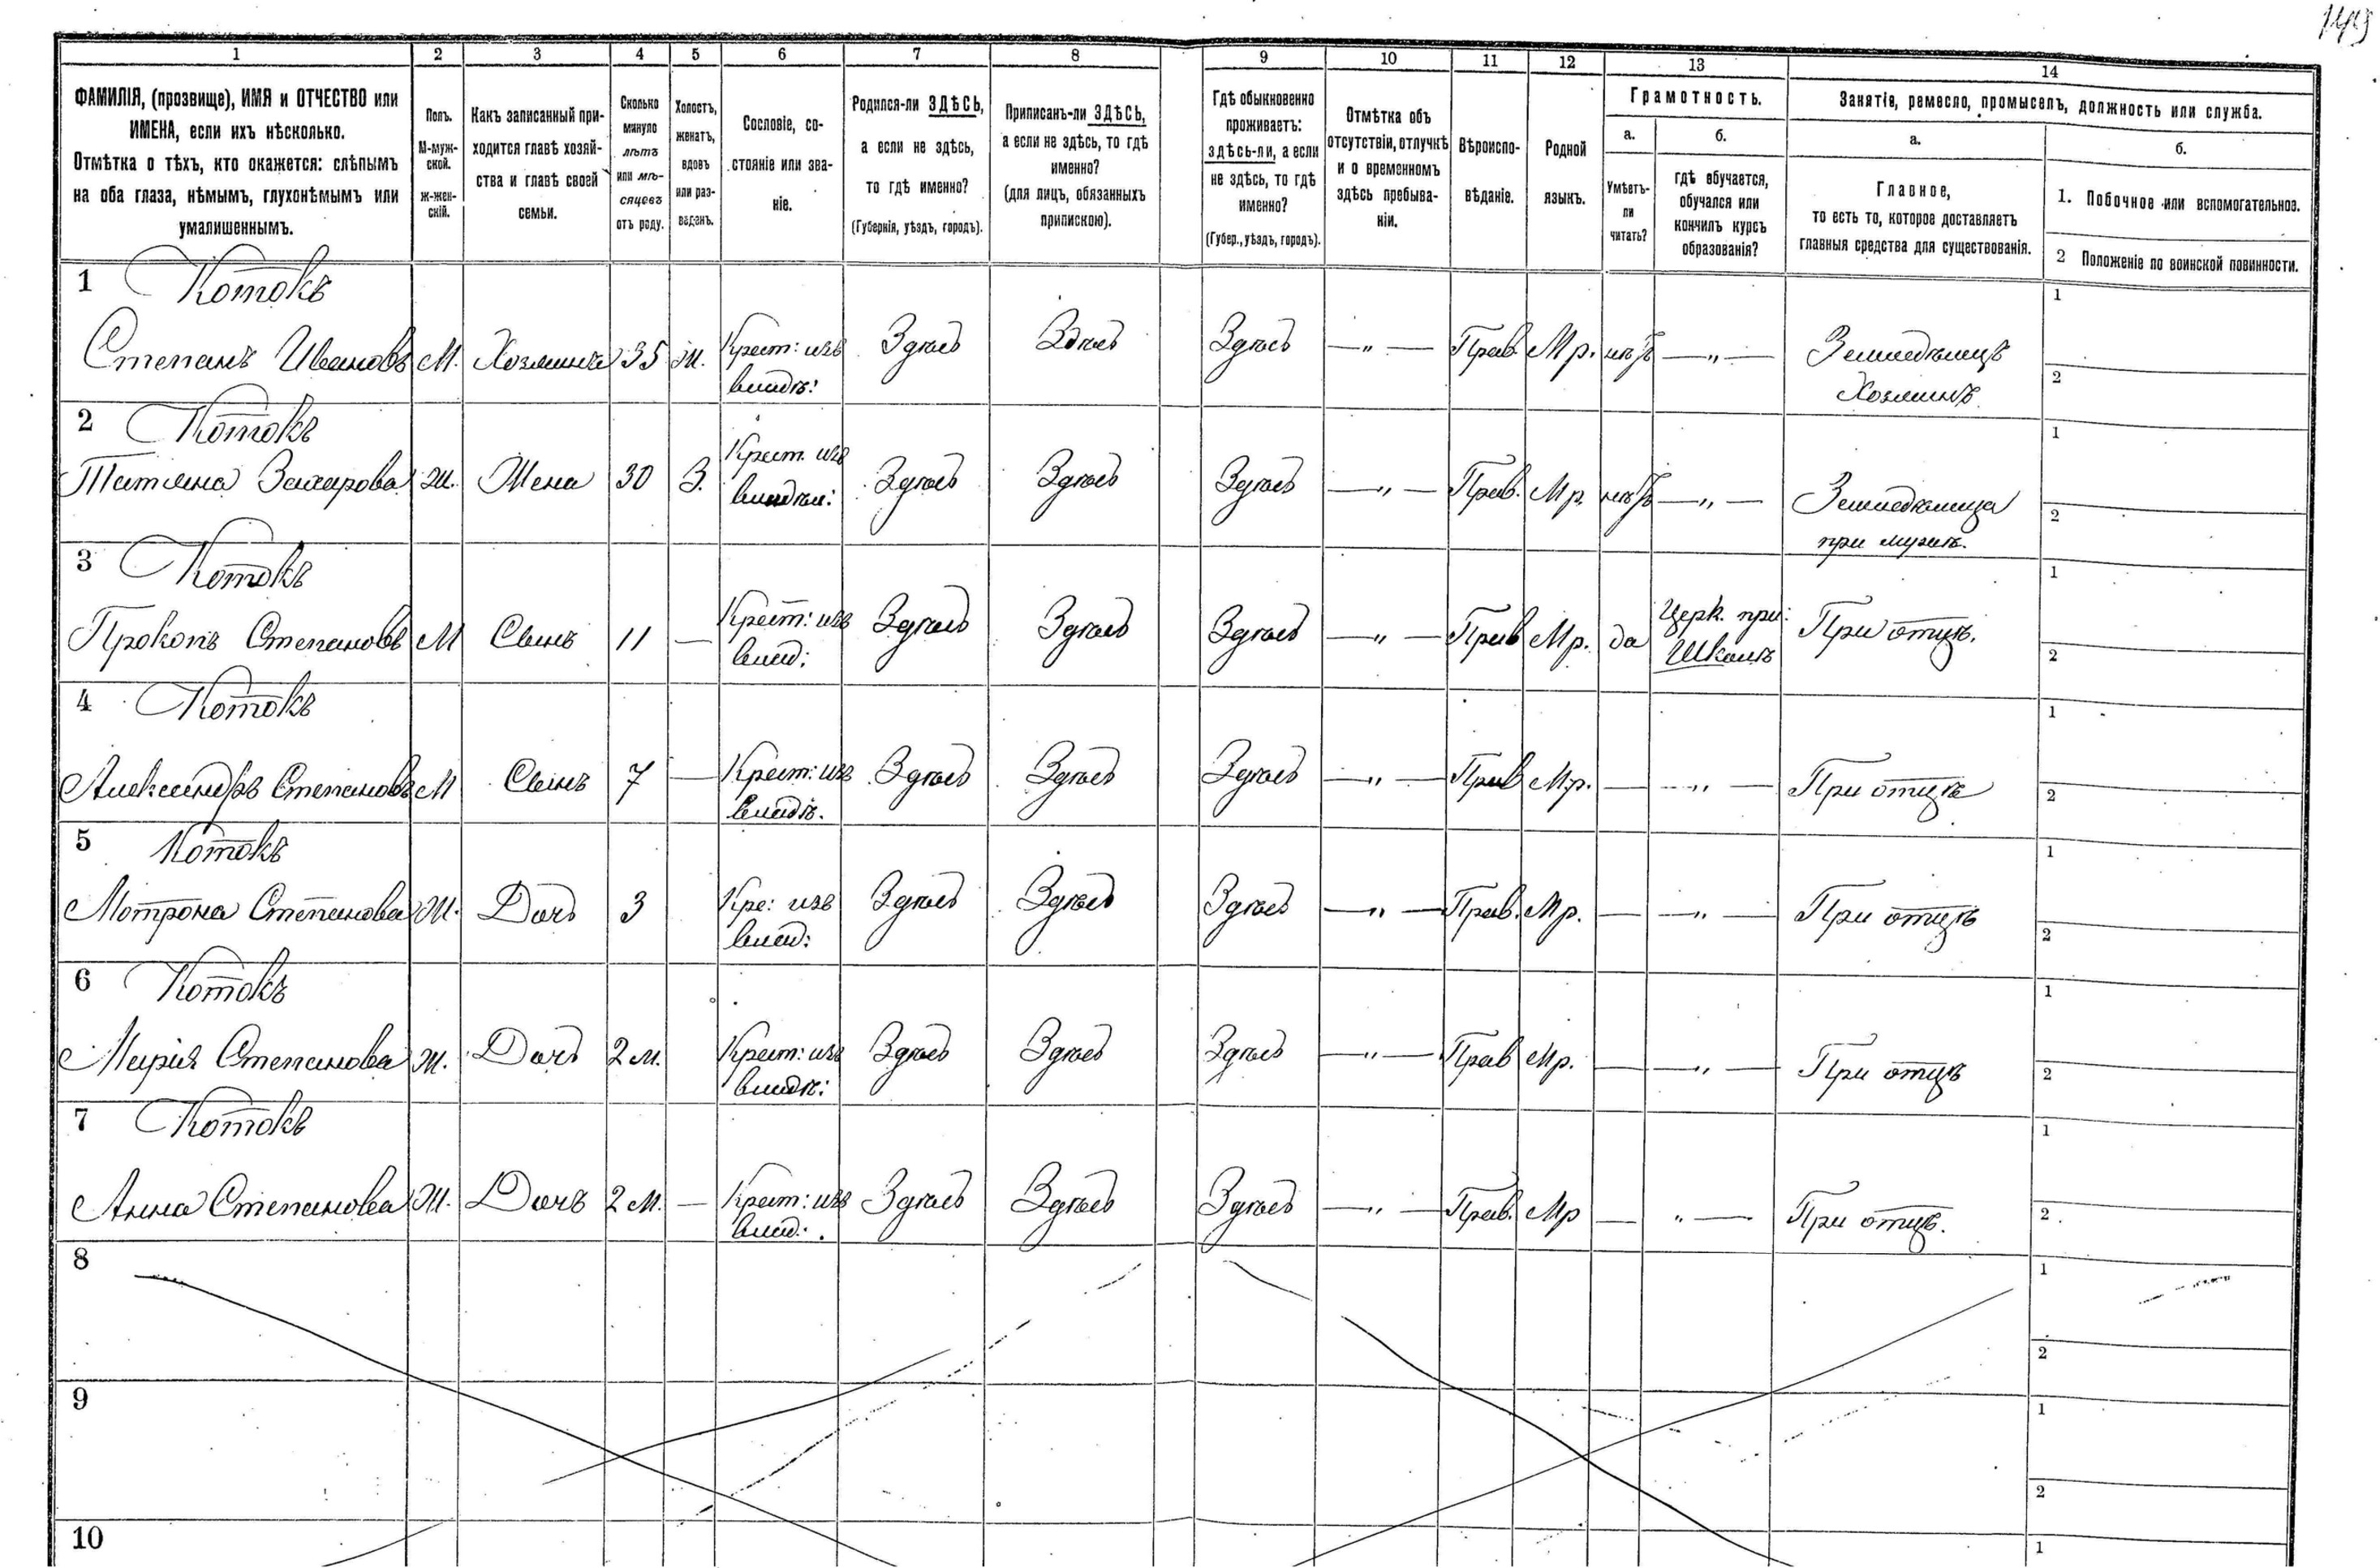 149
1 2 3 4 5 6 7 8 9 10 11 12 13 14
ФАМИЛІЯ, (прозвище), ИМЯ и ОТЧЕСТВО или
ИМЕНА, если ихъ нѣсколько.
Отмѣтка о тѣхъ, кто окажется: слѣпымъ
на оба глаза, нѣмымъ, глухонѣмымъ или
умалишеннымъ.
Полъ.
М-муж-
ской.
ж-жен-
скій.
Какъ записанный при-
ходится главѣ хозяй-
ства и главѣ своей
семьи.
Сколько
минуло
лѣтъ
или мѣ-
сяцевъ
отъ роду.
Холостъ,
женатъ,
вдовъ
или раз-
веденъ.
Сословіе, со-
стояніе или зва-
ніе.
Родился-ли ЗДѢСЬ,
а если не здѣсь,
то гдѣ именно?
(Губернія, уѣздъ, городъ).
Приписанъ-ли ЗДѢСЬ,
а если не здѣсь, то гдѣ
именно?
(для лицъ, обязанныхъ
припискою).
Гдѣ обыкновенно
проживаетъ:
здѣсь-ли, а если
не здѣсь, то гдѣ
именно?
(Губер., уѣздъ, городъ).
Отмѣтка объ
отсутствіи, отлучкѣ
и о временномъ
здѣсь пребыва-
ніи.
Вѣроиспо-
вѣданіе.
Родной
языкъ.
Грамотность.
а.
Умѣетъ-
ли
читать?
б.
гдѣ обучается,
обучался или
кончилъ курсъ
образованія?
Занятіе, ремесло, промыселъ, должность или служба.
а.
Главное,
то есть то, которое доставляетъ
главныя средства для существованія.
б.
1. Побочное или вспомогательное.
2 Положеніе по воинской повинности.
1 Котокъ
Степанъ Ивановъ М. Хозяинъ 35 Ж. Крест: изъ Здѣсь Здѣсь Здѣсь — „ — Прав. Мр. нѣтъ — „ — Земледѣлецъ
владѣ: Хозяинъ
1
2
2 Котокъ
Татьяна Захарова Ж. Жена 30 З. Крест. изъ Здѣсь Здѣсь Здѣсь — „ — Прав. Мр. нѣтъ — „ — Земледѣлица
владѣл: при мужѣ.
1
2
3 Котокъ
Прокопъ Степановъ М Сынъ 11 — Крест: изъ Здѣсь Здѣсь Здѣсь — „ — Прав Мр. да Церк. при: При отцѣ.
влад: Школѣ
1
2
4 Котокъ
Александръ Степановъ М Сынъ 7 — Крест: изъ Здѣсь Здѣсь Здѣсь — „ — Прав Мр. — „ — При отцѣ
владѣ.
1
2
5 Котокъ
Мотрона Степанова Ж. Дочь 3 Кре: изъ Здѣсь Здѣсь Здѣсь — „ — Прав. Мр. — — „ — При отцѣ
влад:
1
2
6 Котокъ
Марія Степанова Ж. Дочь 2 м. Крест: изъ Здѣсь Здѣсь Здѣсь — „ — Прав Мр. — — „ — При отцѣ
владѣ:
1
2
7 Котокъ
Анна Степанова Ж. Дочь 2 м. — Крест: изъ Здѣсь Здѣсь Здѣсь — „ — Прав. Мр — „ — При отцѣ.
влад:
1
2
8
1
2
9
1
2
10
1